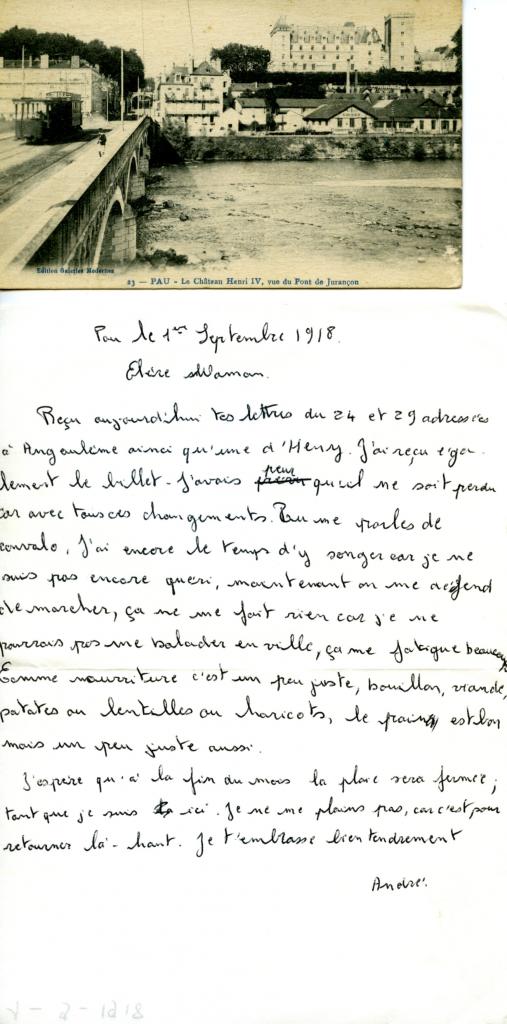 Edition Galeries Modernes
23 — PAU - Le Château Henri IV, vue du Pont de Jurançon
Pau le 1er Septembre 1918.
Chère Maman.
Reçu aujourd'hui tes lettres du 24 et 29 adressées
à Angoulème ainsi qu'une d'Henry. J'ai reçu éga-
lement le billet. J'avais peur qu'il ne soit perdu
car avec tous ces changements. Tu me parles de
convalo, j'ai encore le temps d'y songer car je ne
suis pas encore guéri, maintenant on me défend
de marcher, ça ne me fait rien car je ne
pourrais pas me balader en ville, ça me fatigue beaucoup
Comme nourriture c'est un peu juste, bouillon, viande,
patates ou lentilles ou haricots, le pain est bon
mais un peu juste aussi.
J'espère qu'à la fin du mois la plaie sera fermée;
tant que je suis ici. Je ne me plains pas, car c'est pour
retourner là-haut. Je t'embrasse bien tendrement
André.